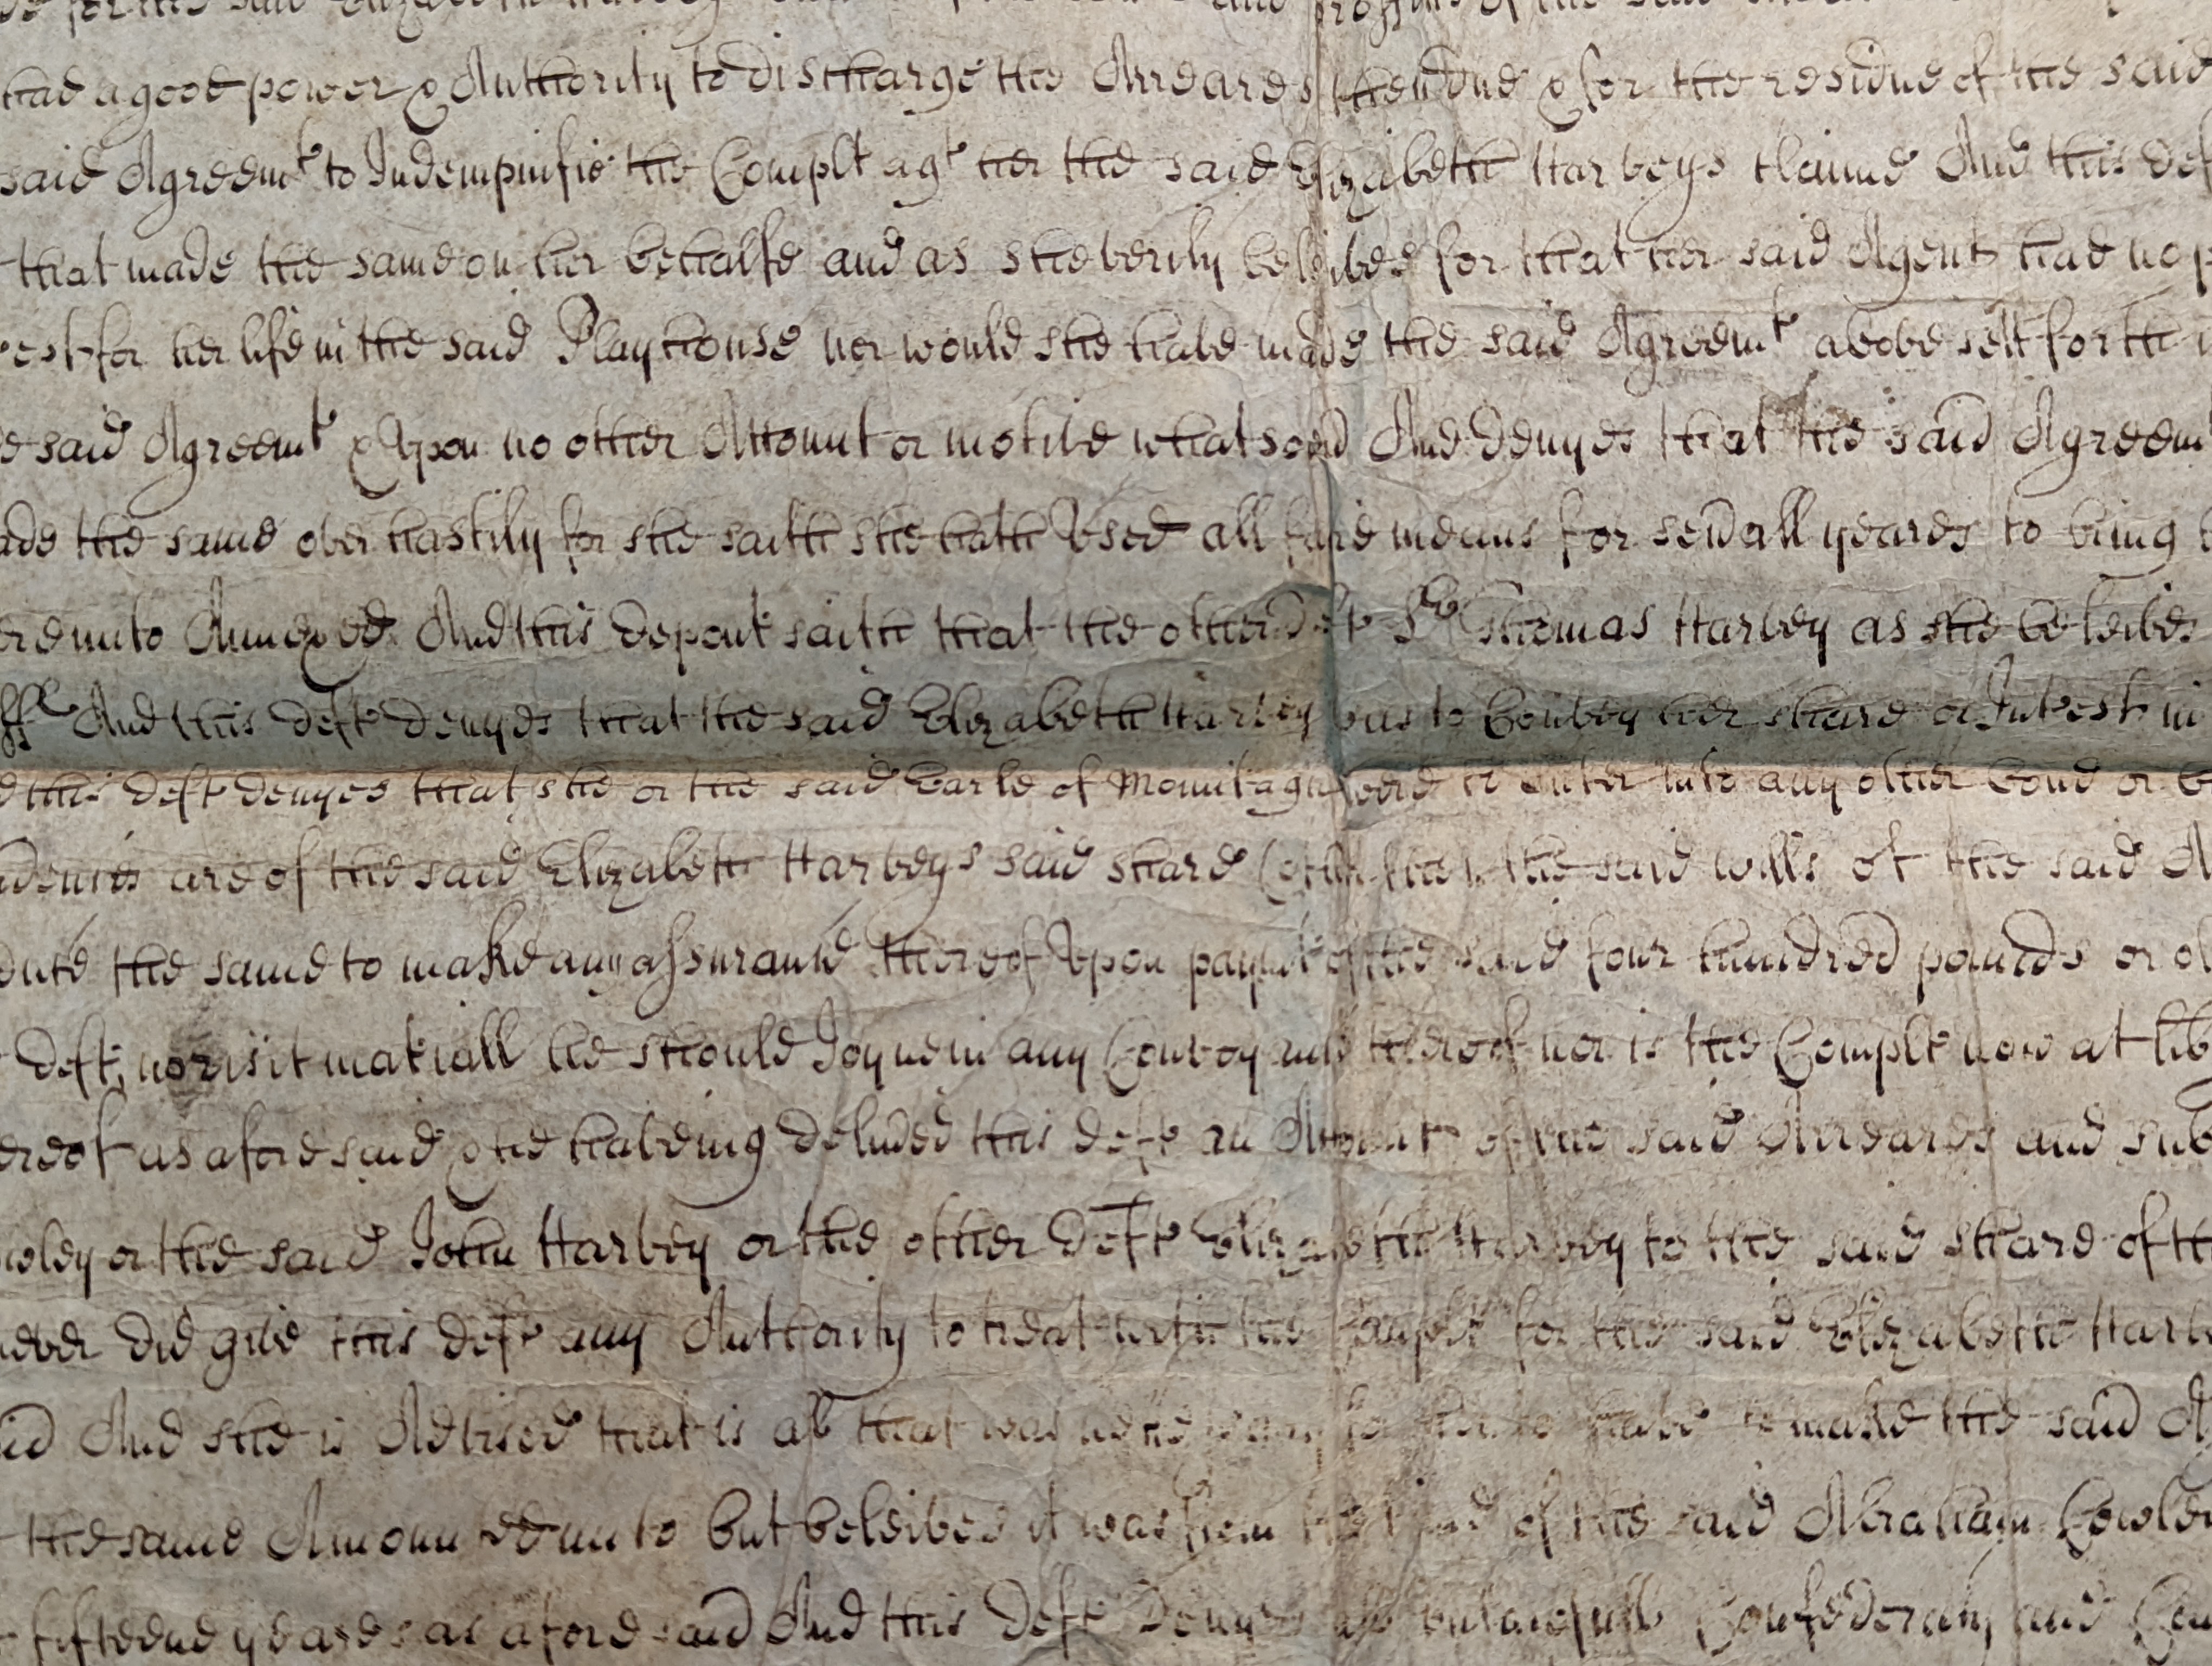 for the said Elizabeth Harvey and proffitts of the said
had a good power & Authority to discharge the Arreares then due & for the residue of the said
said Agreemt to Indempnifie the Complt agt her the said Elizabeth Harveys claime And this def
that made the same on her behalfe and as she verily beleives for that her said Agent had no p
est for her life in the said Playhouse nor would she have made the said Agreemt above sett forth
e said Agreemt & Upon no other Account or motive whatsoever And denyes that the said Agreem
ade the same over hastily for she saith she hath Used all faire means for severall yeares to bring
ereunto Annexed And this depont saith that the other deft Sr Thomas Harvey as she beleives
And this deft denyes that the said Elizabeth Harvey was to Convey her share or Interest in
d this deft denyes that she or the said Earle of Mountague were to enter into any other bond or
are of the said Elizabeth Harveys said share the said wills of the said A
the same to make any assurance thereof Upon paymt of the said four hundred pounds or ot
deft nor is it matiall he should Joyne in any Conveyance thereof nor is the Complt now at lib
ereof as aforesaid & he haveing delivered this deft an Account of the said Arreares and sub
owley or the said John Harvey or the other Deft Elizabeth Harvey to the said share of th
never did give this deft any Authority to treat with the Complt for the said Elizabeth Harv
id And she is Advised that is all that was necessary for her to have to make the said A
the same Amounted unto but beleives it was from the of the said Abraham Cowley
fifteene yeares as aforesaid And this Deft Denyes all unlawfull Confederacy and Com